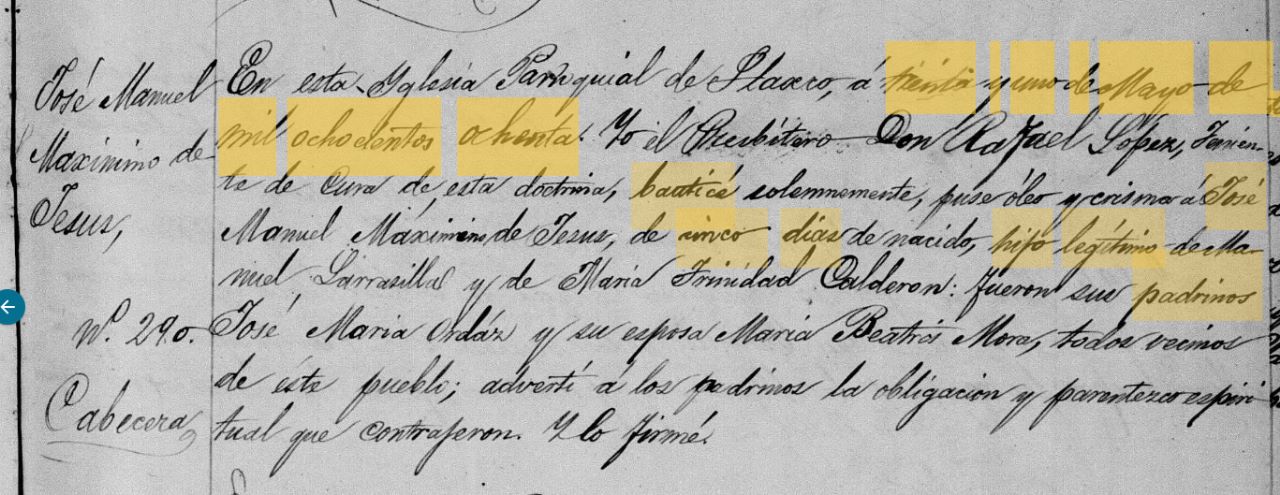 José Manuel
Maximino de
Jesus,
Nº. 290.
Cabecera,
En esta Yglesia Parroquial de Tlaxco, á treinta y uno de Mayo de
mil ochocientos ochenta: Yo el Presbítero Don Rafael López, Tenien-
te de Cura de esta doctrina, bauticé solemnemente, puse óleo y crisma á José
Manuel Máximino de Jesus, de cinco dias de nacido, hijo legítimo de Ma-
nuel Larrasilla y de Maria Trinidad Calderon: fueron sus padrinos
José Maria Ordáz y su esposa Maria Beatris Mora, todos vecinos
de éste pueblo; advertí á los padrinos la obligacion y parentezco espiri-
tual que contrageron. Y lo firmé.